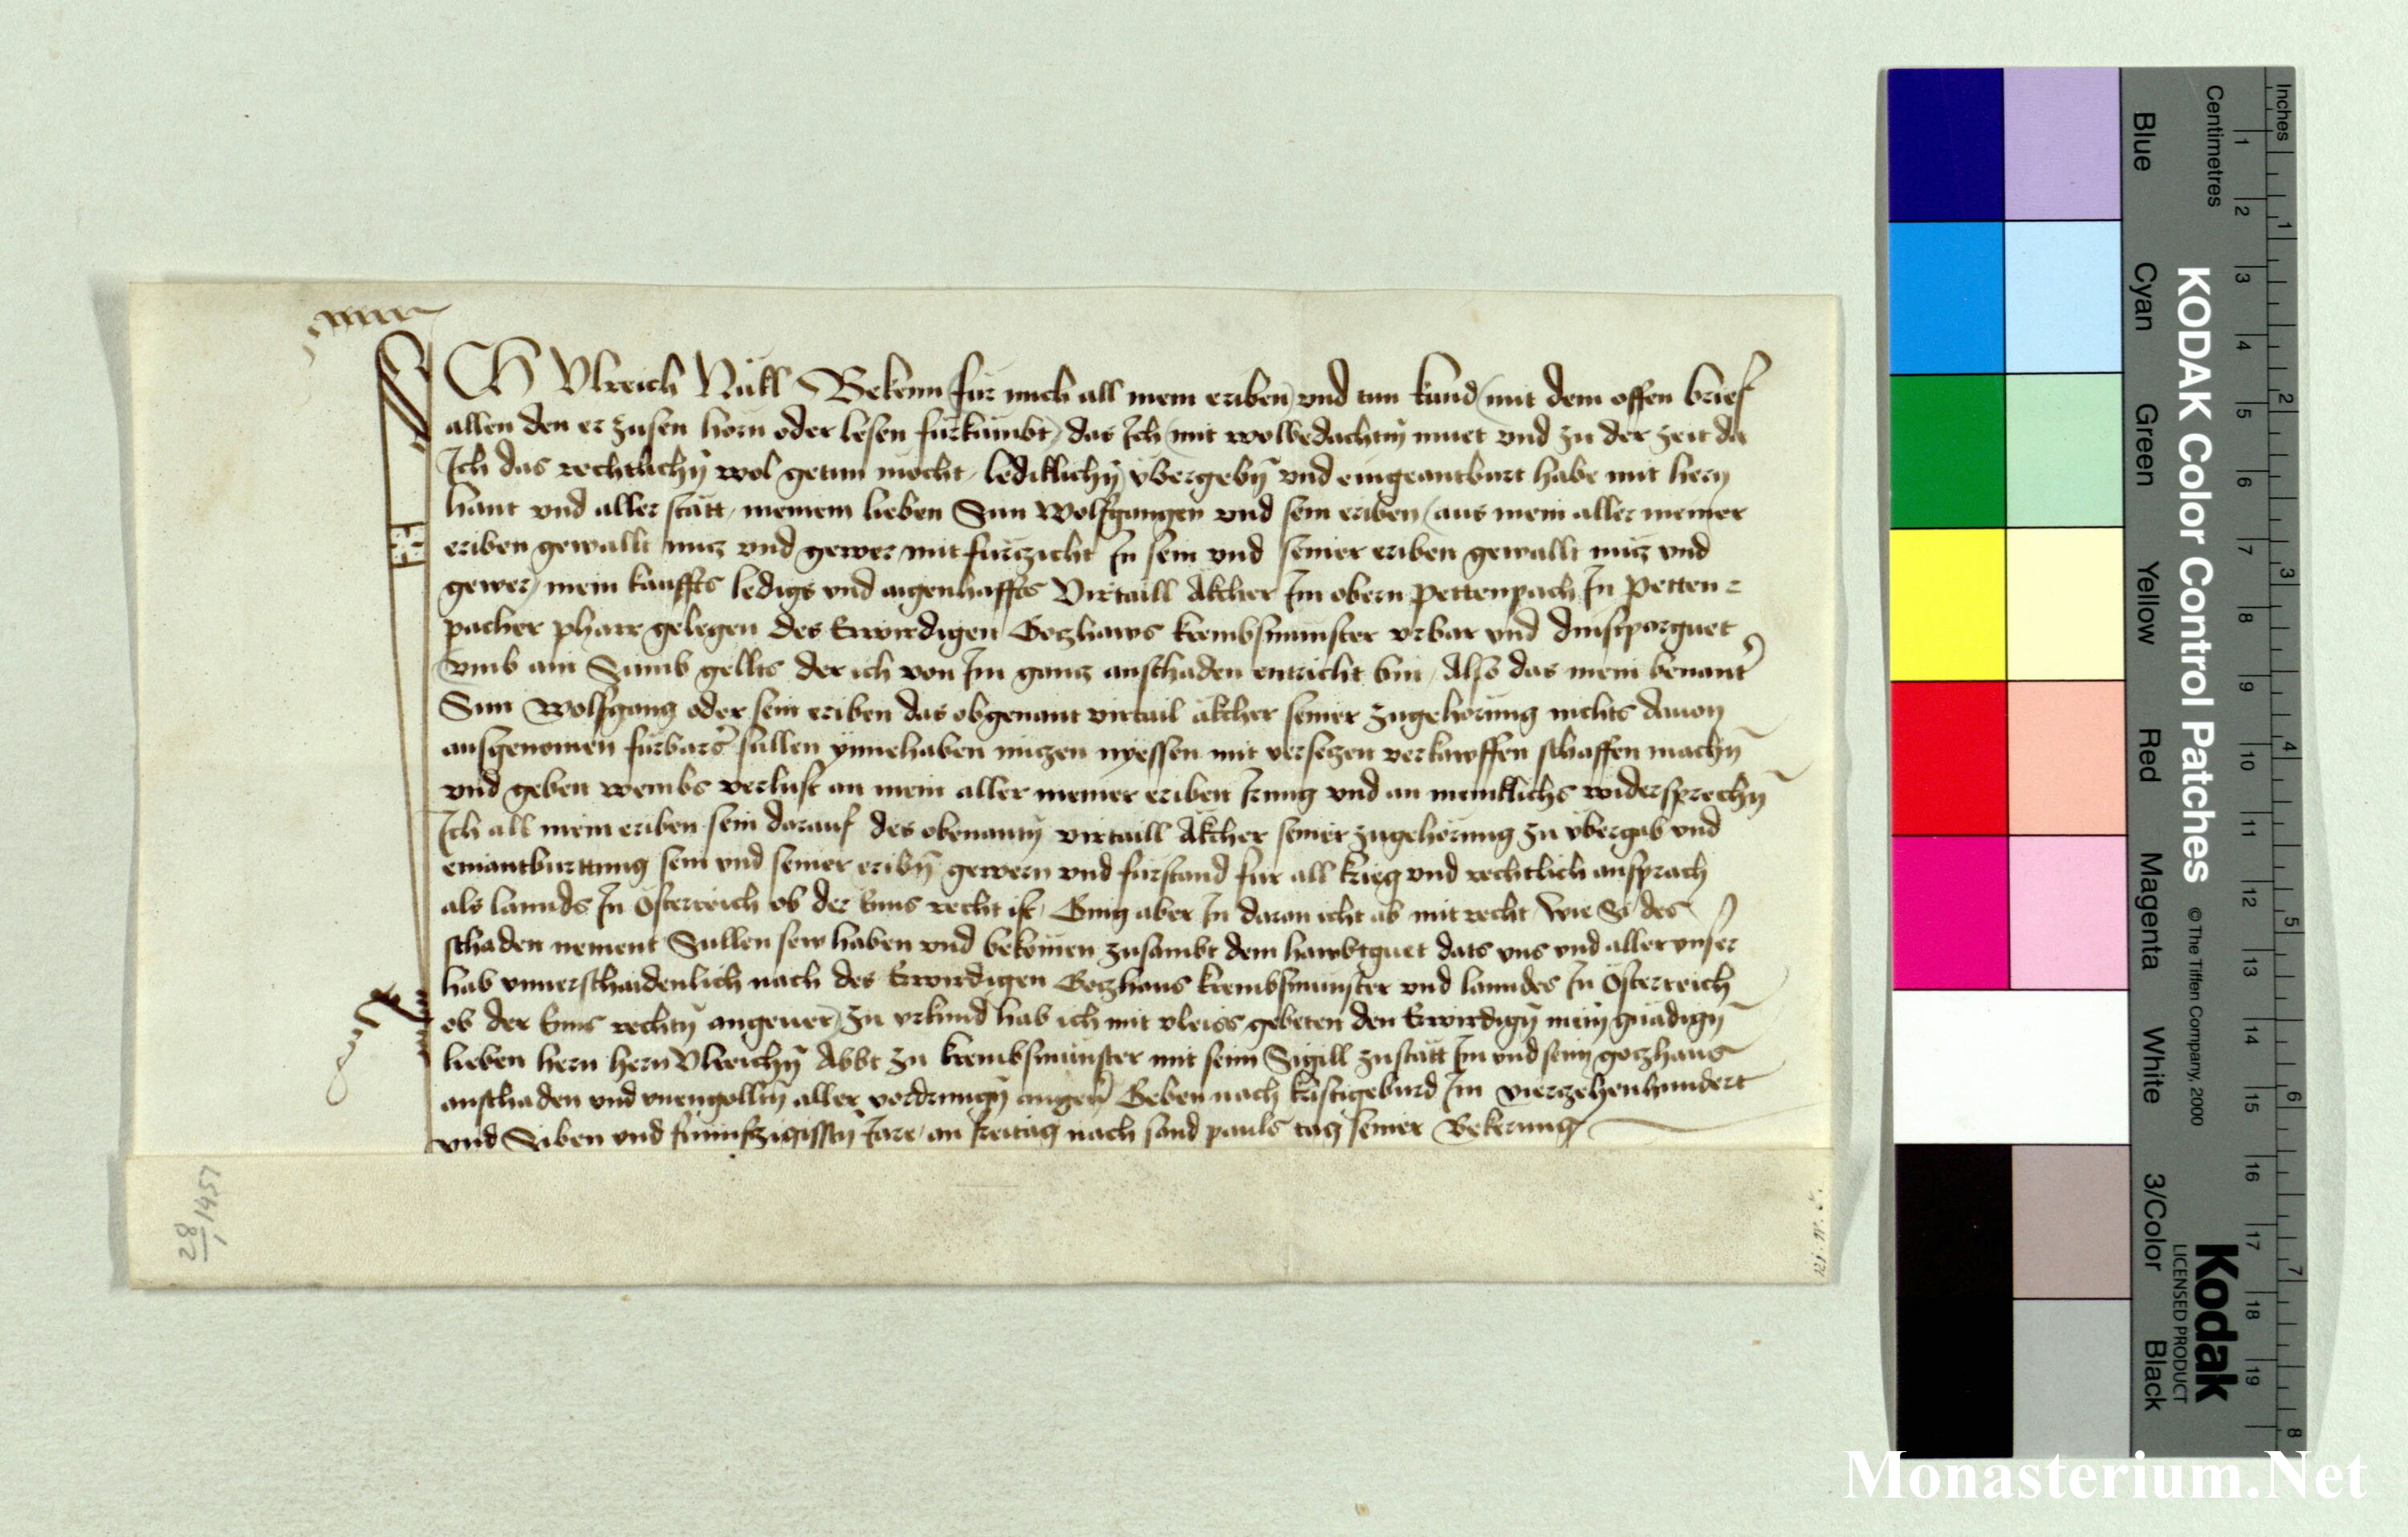 ICH Ulreich Nükl Bekenn für mich all mein eriben und tun kund mit dem offen brief
allen den er zusen hörn oder lesen fürkümbt das Ich mit wolbedachtm muet und zu der zeit da
Ich das rechtlichn wol getun mocht lediklichn übergebn und eingeantburt habe mit hern
hant und aller statt meinem lieben Sun Wolfgangen und sein eriben aus mein aller meiner
eriben gewallt nucz und gewer mit fürczicht In sein und seiner eriben gewallt nücz und
gewer mein kauffts ledigs und aigenhaffts Virtaill Akcher Im obern pettenpach In Petten
pacher pharr gelegen des Erwirdigen Goczhaws krembsmunster urbar und dinstporguet
Umb ain Sumb gellts der ich von Im gancz anschaden entricht bin Also das mein benant
Sun Wolfgang oder sein eriben das obgenant virtail äkcher seiner zugehörung nichts dauon
ausgenomen fürbars sullen ynnehaben nüczen nyessen mit verseczen verkawffen schaffen machn
und geben wembs verlust an mein aller meiner eriben Irung und an meniklichs widersprechn
Ich all mein eriben sein darauf des obenantn virtaill Akcher seiner zugehörung zu übergab und
einantburttung sein und seiner eribn gewern und fürstand für all krieg und rechtlich ansprach
als lannds In Österreich ob der Enns recht ist Ging aber In daran icht ab mit recht wie Si des
schaden nement Sullen sew haben und bekömen zusambt dem hawbtguet dats uns und aller unser
hab unuerschaidenlich nach des Erwirdigen Goczhaus krembsmunster und lanndes In Österreich
ob der Enns rechtn angeuer Zu urkund hab ich mit vleiss gebeten den Erwirdign mein gnädign
lieben hern hern Ulreichn Abbt zu krembsmünster mit seim Sigill zustätt Im und seim goczhaus
anschaden und unengolltn aller vordrungn angeu Geben nach kristigeburd Im vierzehenhundert
und Siben und fünnfzigissten Jare an freitag nach sand pauls tag seiner Bekerung
28/1 1457
Inches
Centimetres
1 2 3 4 5 6 7 8
1 2 3 4 5 6 7 8 9 10 11 12 13 14 15 16 17 18 19
KODAK Color Control Patches
© The Tiffen Company, 2000
Kodak
LICENSED PRODUCT
Blue
Cyan
Green
Yellow
Red
Magenta
White
3/Color
Black
Monasterium.Net